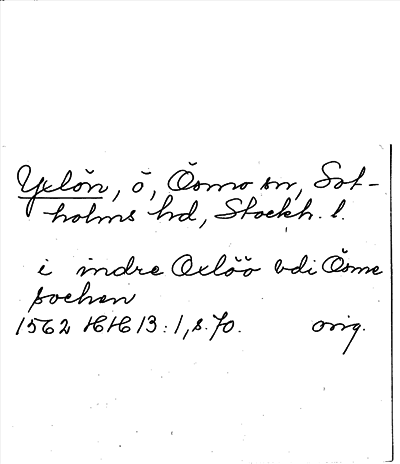 Yxlön, ö, Ösmo sn, Sot-
holms hd, Stockh. l.
i indre Oxlöö vdi Ösme
sochen
1562 HH 13:1, s. 70. orig.